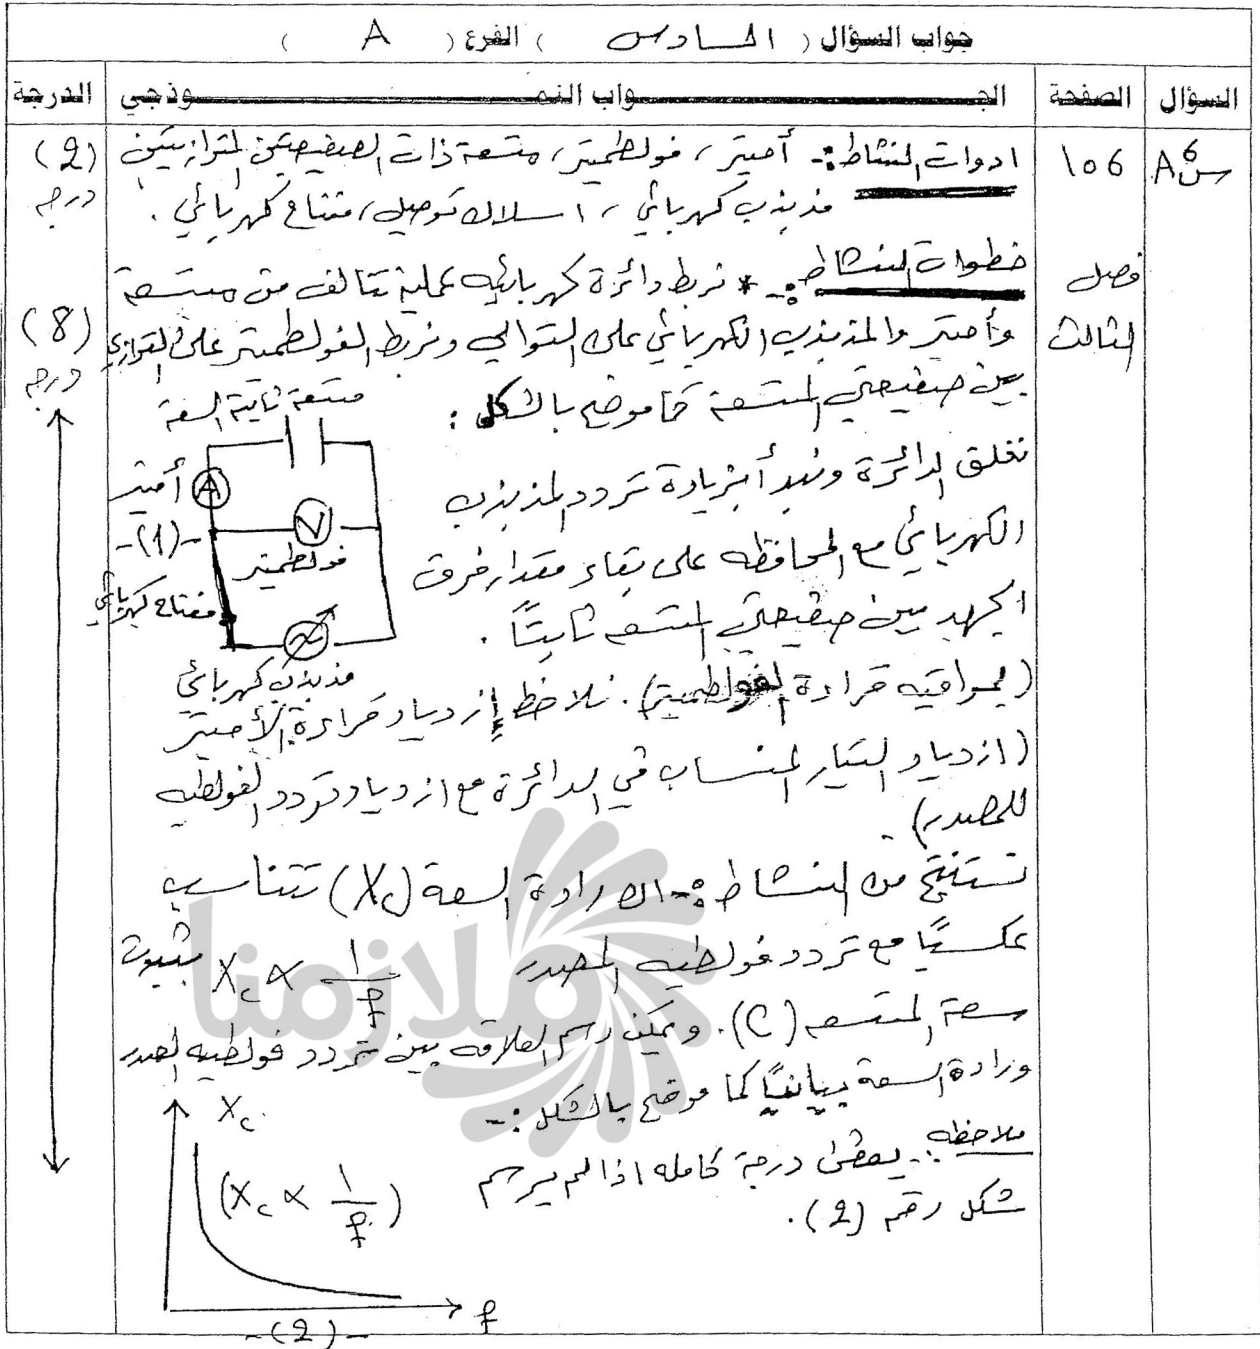 جواب السؤال ( السادس ) الفرع ( A )
السؤال الصفحة الجـــواب النمـــوذجي الدرجة
س6 A 106 ادوات النشاط:- أميتر، فولطميتر، متسعة ذات الصفيحتين المتوازيتين (2)
مذبذب كهربائي، اسلاك توصيل، مفتاح كهربائي. درجة
فصل خطوات النشاط:- * نربط دائرة كهربائيه عملية تتألف من متسعة
الثالث وأميتر والمذبذب الكهربائي على التوالي ونربط الفولطميتر على التوازي (8)
بين صفيحتي المتسعة كما موضح بالشكل: درجة
متسعة ثابتة السعة
نغلق الدائرة ونبدأ بزيادة تردد المذبذب
أميتر A
الكهربائي مع المحافظه على بقاء مقدار فرق
V
-(1)-
فولطميتر
الجهد بين صفيحتي المتسعه ثابتاً.
مفتاح كهربائي
مذبذب كهربائي
(لمراقبه قراءة الفولطميتر). نلاحظ إزدياد قراءة الأميتر
(ازدياد التيار المنساب في الدائرة مع ازدياد تردد الفولطيه
للمصدر).
نستنتج من النشاط:- ان رادة السعة (Xc) تتناسب
عكسيًا مع تردد فولطيه المصدر Xc ∝ 1/f بثبوت
سعة المتسعه (C). ويمكن رسم العلاقه بين تردد فولطيه المصدر
ورادة السعة بيانيًا كما موضح بالشكل:-
Xc
ملاحظه:- يعطى درجة كامله اذا لم يرسم
شكل رقم (2).
(Xc ∝ 1/f)
f
-(2)-
ملازمنا